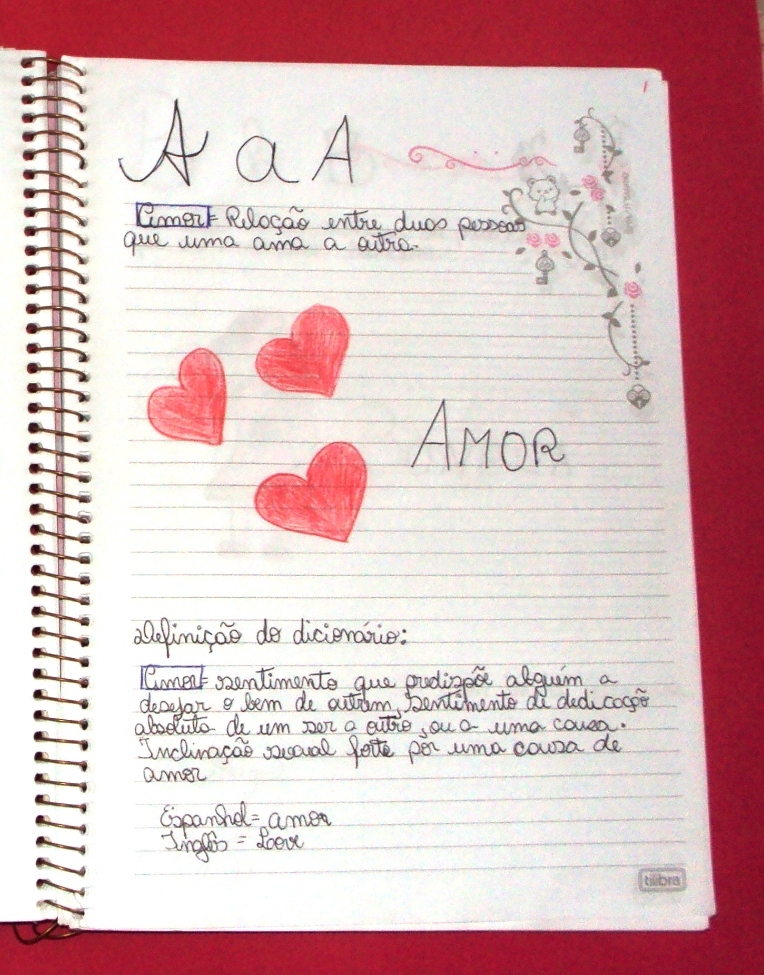 A a A
1
Amor = Relação entre duas pessoas
que uma ama a outra.
AMOR
Definição do dicionário:
Amor = sentimento que predispõe alguém a
desejar o bem de outrem, sentimento de dedicação
absoluta de um ser a outro, ou a uma causa.
Inclinação sexual forte por uma causa de
amor
Espanhol = amor
Inglês = Love
tilibra